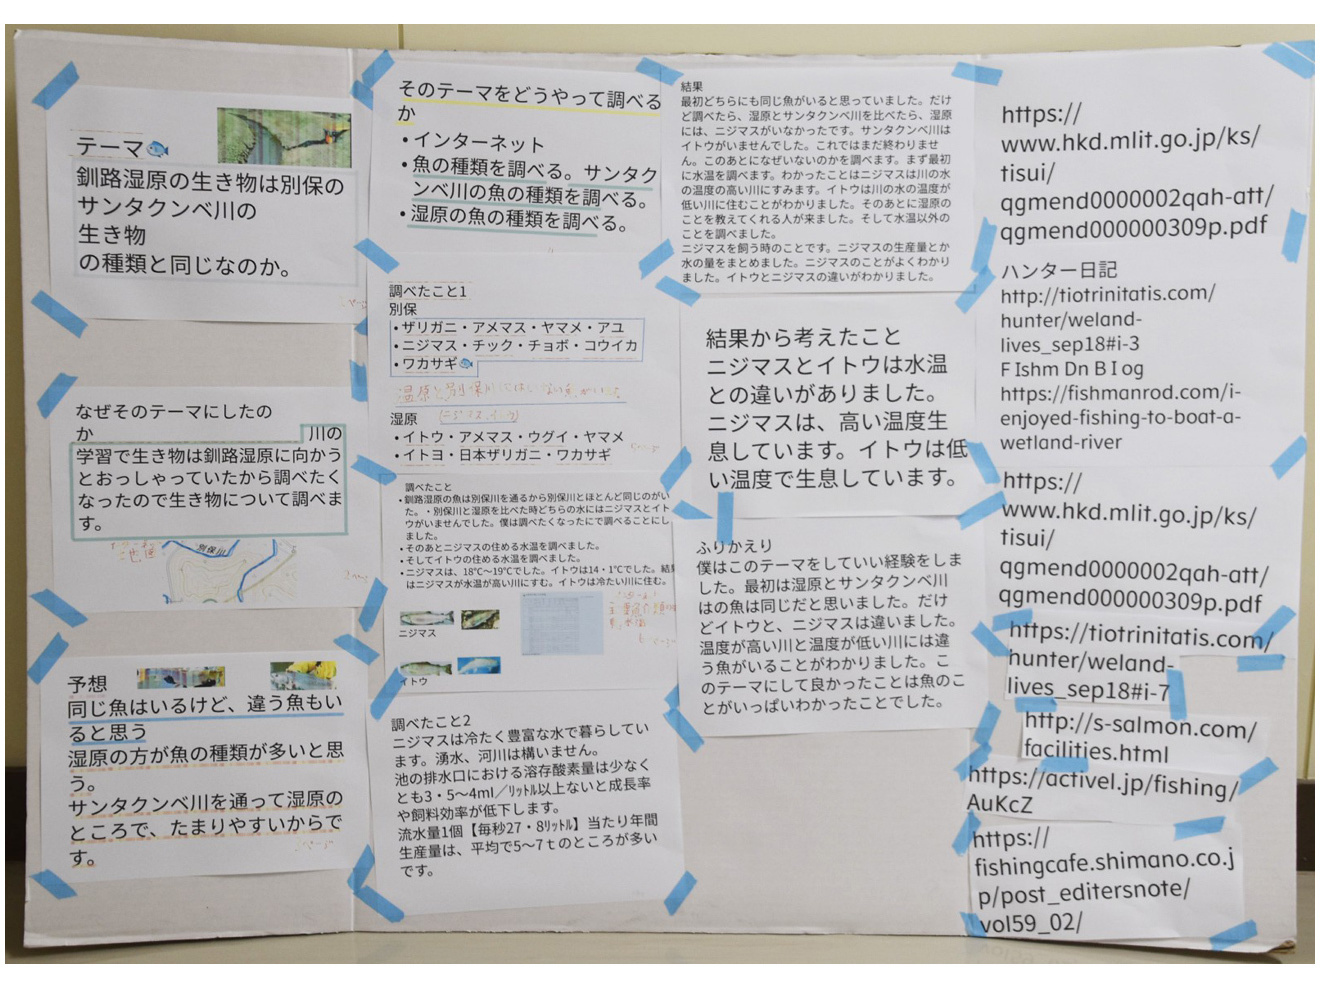 テーマ
釧路湿原の生き物は別保の
サンタクンベ川の
生き物
の種類と同じなのか。
なぜそのテーマにしたの
か
川の
学習で生き物は釧路湿原に向かう
とおっしゃっていたから調べたく
なったので生き物について調べま
す。
別保川
予想
同じ魚はいるけど、違う魚もい
ると思う
湿原の方が魚の種類が多いと思
う。
サンタクンベ川を通って湿原の
ところで、たまりやすいからで
す。
そのテーマをどうやって調べる
か
・インターネット
・魚の種類を調べる。サンタク
ンベ川の魚の種類を調べる。
・湿原の魚の種類を調べる。
調べたこと1
別保
・ザリガニ・アメマス・ヤマメ・アユ
・ニジマス・チック・チョボ・コウイカ
・ワカサギ
湿原と別保川にはいない魚がいた
湿原 (ニジマス、イトウ)
・イトウ・アメマス・ウグイ・ヤマメ
・イトヨ・日本ザリガニ・ワカサギ
調べたこと
・釧路湿原の魚は別保川を通るから別保川とほとんど同じのがい
た。・別保川と湿原を比べた時どちらの水にはニジマスとイト
ウがいませんでした。僕は調べたくなったにで調べることにし
ました。
・そのあとニジマスの住める水温を調べました。
・そしてイトウの住める水温を調べました。
・ニジマスは、18℃〜19℃でした。イトウは14・1℃でした。結果
はニジマスが水温が高い川にすむ。イトウは冷たい川に住む。
ニジマス
イトウ
調べたこと2
ニジマスは冷たく豊富な水で暮らしてい
ます。湧水、河川は構いません。
池の排水口における溶存酸素量は少なく
とも3・5〜4ml／ﾘｯﾄﾙ以上ないと成長率
や飼料効率が低下します。
流水量1個【毎秒27・8ﾘｯﾄﾙ】当たり年間
生産量は、平均で5〜7ｔのところが多い
です。
結果
最初どちらにも同じ魚がいると思っていました。だけ
ど調べたら、湿原とサンタクンベ川を比べたら、湿原
には、ニジマスがいなかったです。サンタクンベ川は
イトウがいませんでした。これではまだ終わりませ
ん。このあとになぜいないのかを調べます。まず最初
に水温を調べます。わかったことはニジマスは川の水
の温度の高い川にすみます。イトウは川の水の温度が
低い川に住むことがわかりました。そのあとに湿原の
ことを教えてくれる人が来ました。そして水温以外の
ことを調べました。
ニジマスを飼う時のことです。ニジマスの生産量とか
水の量をまとめました。ニジマスのことがよくわかり
ました。イトウとニジマスの違いがわかりました。
結果から考えたこと
ニジマスとイトウは水温
との違いがありました。
ニジマスは、高い温度生
息しています。イトウは低
い温度で生息しています。
ふりかえり
僕はこのテーマをしていい経験をしま
した。最初は湿原とサンタクンベ川
はの魚は同じだと思いました。だけ
どイトウと、ニジマスは違いました。
温度が高い川と温度が低い川には違
う魚がいることがわかりました。こ
のテーマにして良かったことは魚のこ
とがいっぱいわかったことでした。
https://
www.hkd.mlit.go.jp/ks/
tisui/
qgmend0000002qah-att/
qgmend000000309p.pdf
ハンター日記
http://tiotrinitatis.com/
hunter/weland-
lives_sep18#i-3
F Ishm Dn B I og
https://fishmanrod.com/i-
enjoyed-fishing-to-boat-a-
wetland-river
https://
www.hkd.mlit.go.jp/ks/
tisui/
qgmend0000002qah-att/
qgmend000000309p.pdf
https://tiotrinitatis.com/
hunter/weland-
lives_sep18#i-7
http://s-salmon.com/
facilities.html
https://activel.jp/fishing/
AuKcZ
https://
fishingcafe.shimano.co.j
p/post_editersnote/
vol59_02/